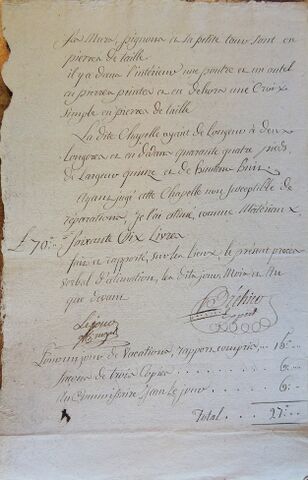 Les Murs, pignons et la petite tour sont en
pierres de taille
il y a dans l'intérieur une poutre et un autel
en pierres peintes et en dehors une Croix
simple en pierres de taille
La dite Chapelle ayant de longueur à deux
Longères et en dedans quarante quatre pieds
de Largeur quinze et de hauteur huit.
Ayant jugé cette Chapelle non susceptible de
réparations, je l'ai estimé, comme Matériaux
£ 70:" Soixante Dix Livres
fait et rapporté, sur les Lieux, le présent procès
verbal d'estimation, les dits jour, Mois et An
que devant
Lejour
Expert
pour un jour de Vacations, rapport compris... 15:"
façon de trois Copies . . . . . 6:"
au Commissaire Jean le jour . . . . 6:"
Total . . . . 27:"